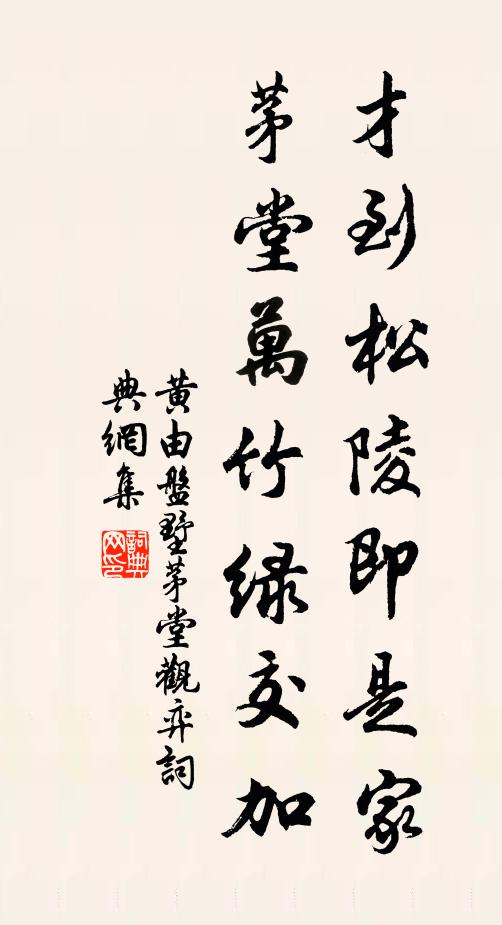 才到松陵即是家
茅堂萬竹綠交加
黄由盤墅茅堂觀弈詞
典網集
詞典
网印